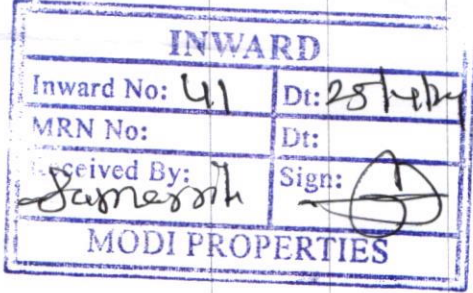 INWARD
Inward No: 41 Dt:
MRN No: Dt:
Received By: Sign:
MODI PROPERTIES